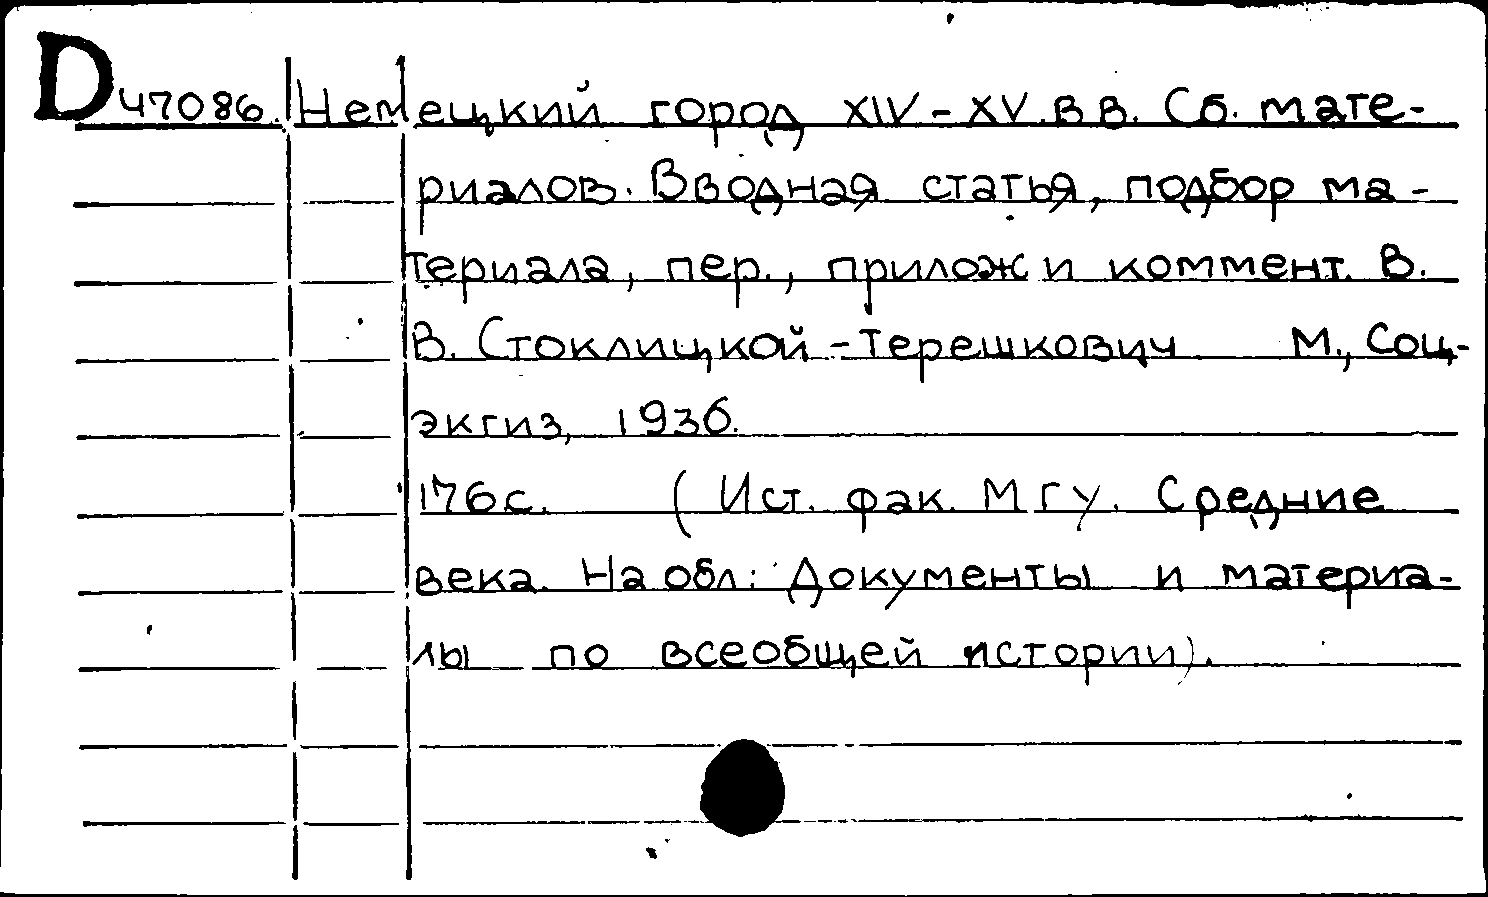 D 47086. Немецкий город XIV-XV.вв. Сб. мате-
риалов. Вводная статья, подбор ма-
териала, пер., прилож и коммент. В.
В. Стоклицкой-Терешкович М., Соц-
экгиз, 1936.
176с. (Ист. фак. МГУ. Средние
века. На обл: Документы и материа-
лы по всеобщей истории).